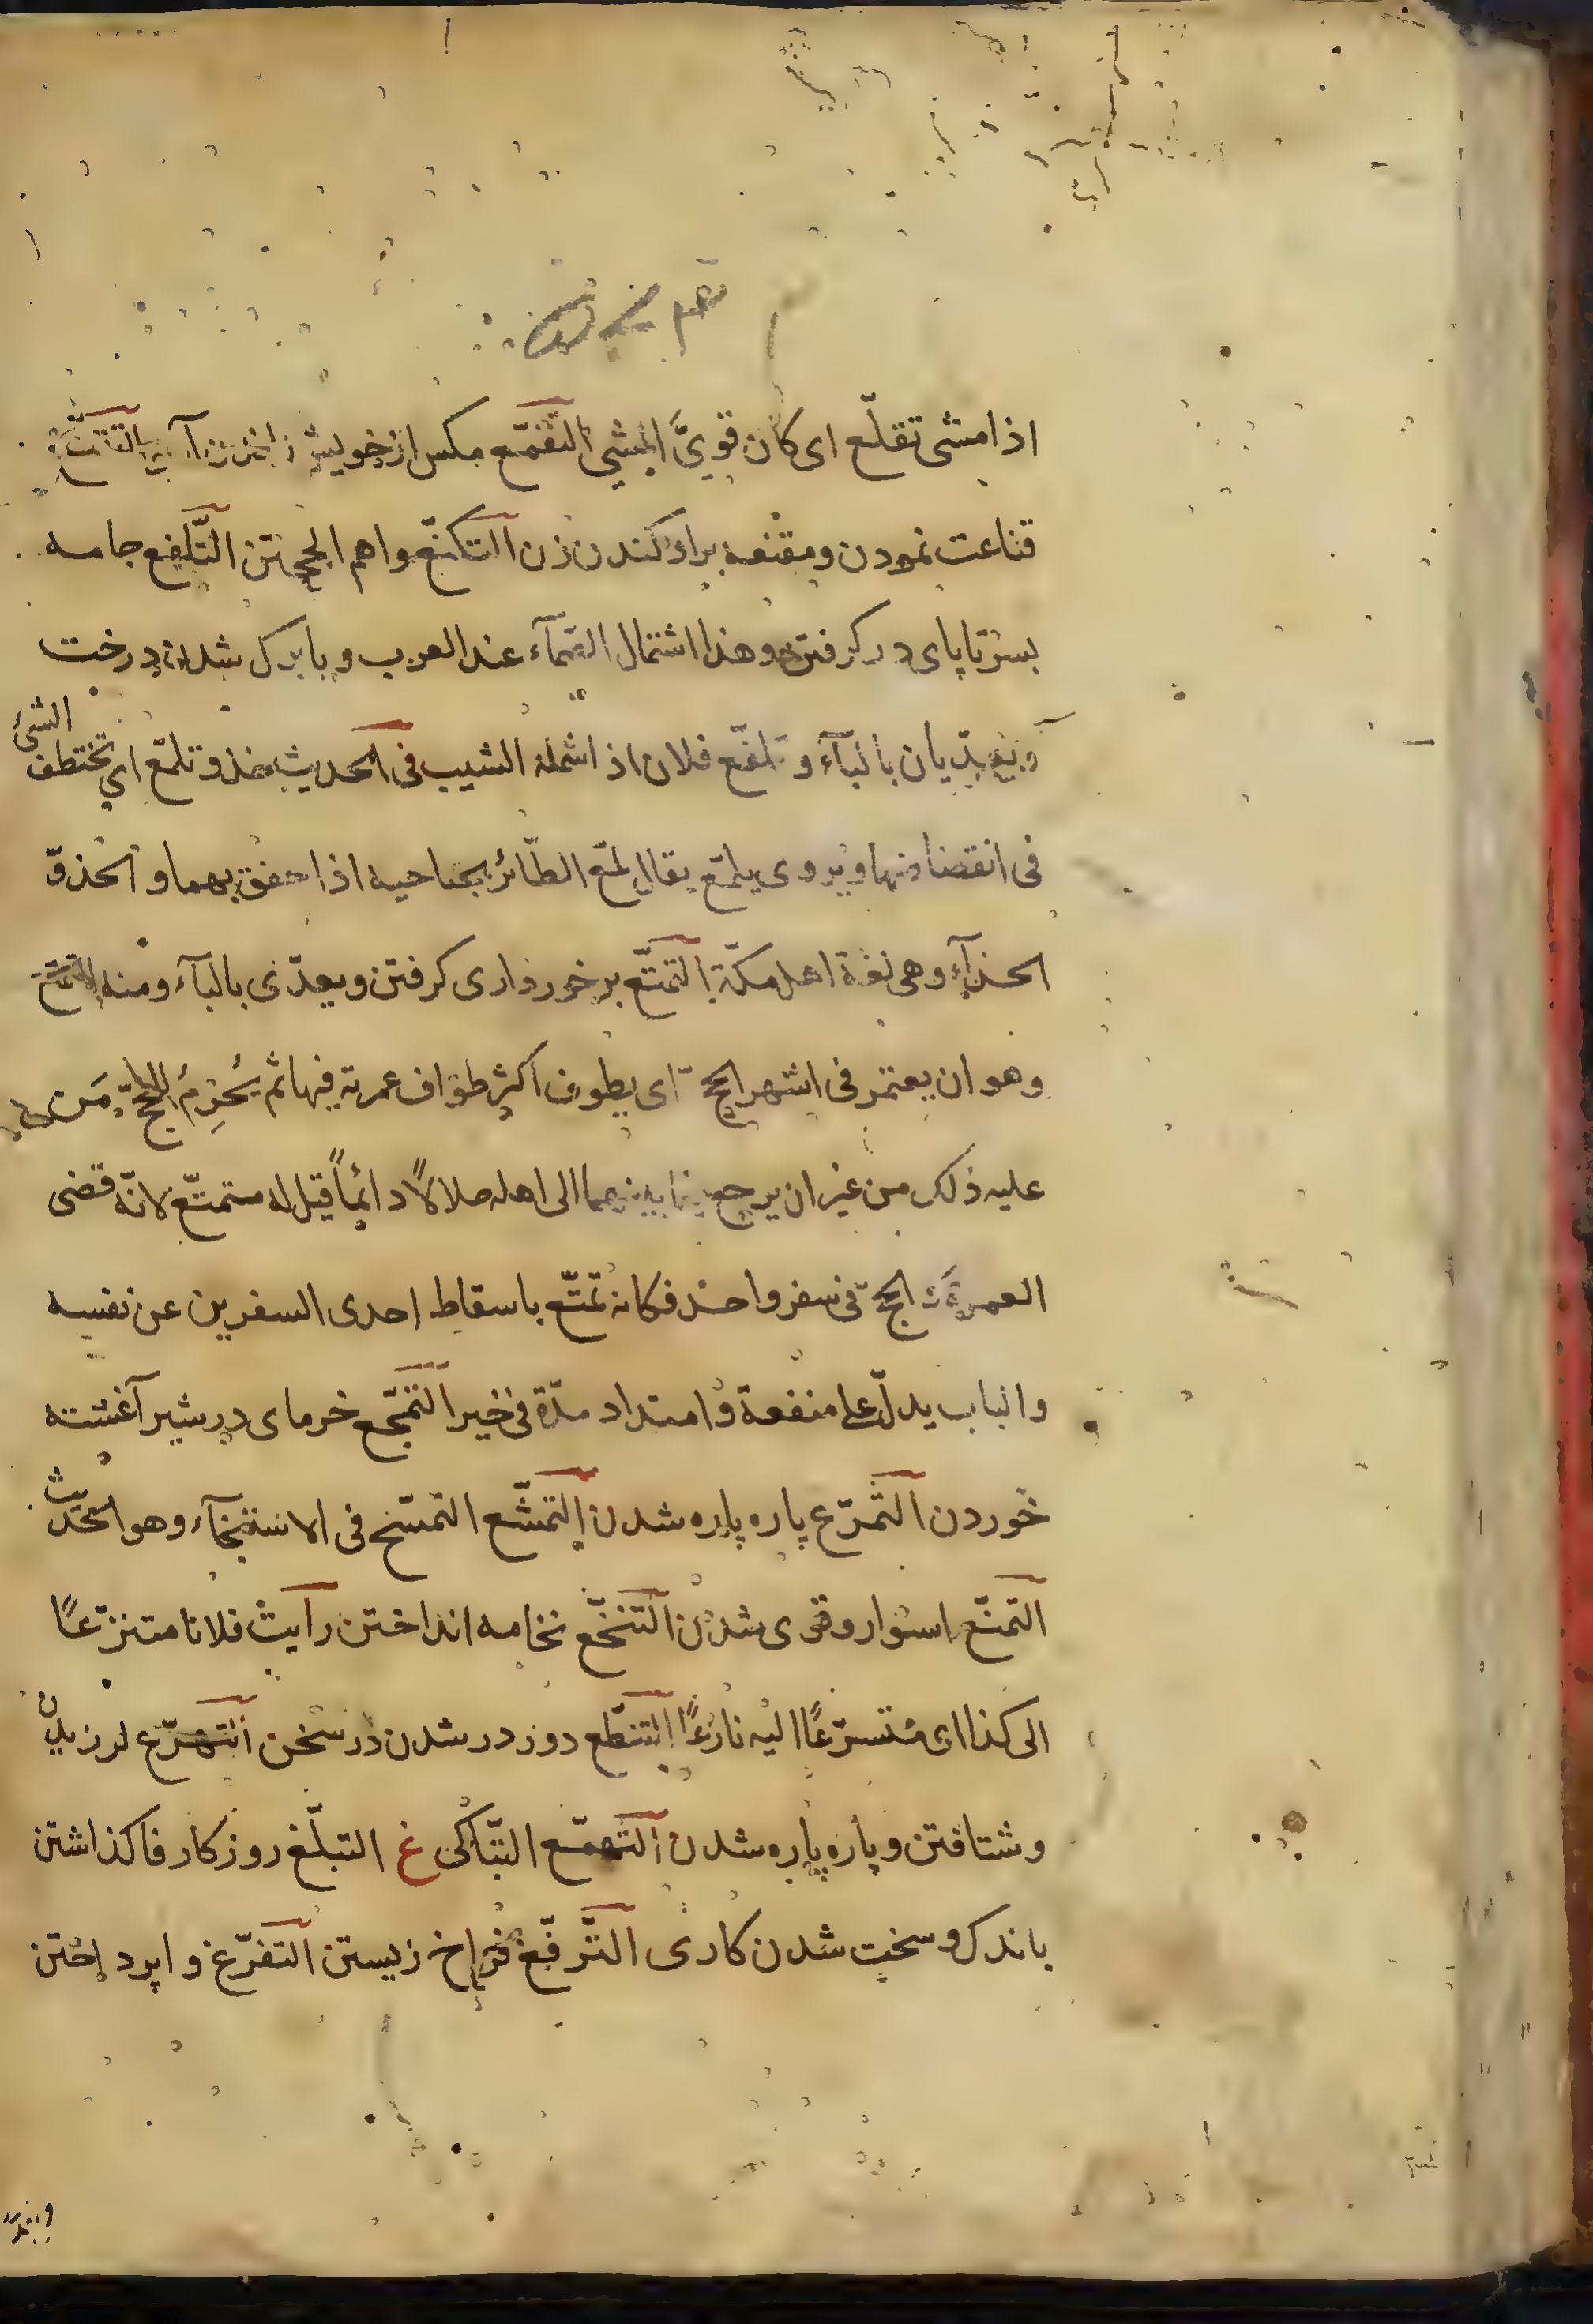 اذا مشى تقلّع اى كان قويَّ المشي التقمّع مكس از خويش
قناعت نمودن ومقنعه برافكندن زن التكنّع واهم الجحتن التّلفع جامه
بسر تا پاى در كرفتن وهذا اشتمال الصّمآء عند العرب وبابرك شدن درخت
ويتعدّيان بالبآء وتلفّع فلان اذا شمله الشيب فى الحديث حذو تلمّع اي تختطف الشئ
فى انقضاضها ويروى يلمّع يقال لمع الطّائر بجناحيه اذا خفق بهما والحذوّ
الحذآء وهى لغة اهل مكّة التمتّع برخوردارى كرفتن ويعدّى بالبآء ومنه التمتّع
وهو ان يعتمر فى اشهر الحجّ اى يطوف اكثر طواف عمرته فيها ثم يُحْرِمُ للحجّ مَن
عليه ذلك من غير ان يرجع فيما بينهما الى اهله حلالاً دائماً قيل له متمتّع لانّه قضى
العمرةَ والحجّ فى سفر واحد فكانه تمتّع باسقاط احدى السفرين عن نفسه
والباب يدلّ على منفعة وامتداد مدّة فى خير التمجّع خرماى در شير آغشته
خوردن التمزّع پاره پاره شدن التمشّع التمسّح فى الاستنجآء وهو الحديث
التمنّع استوار وقوى شدن التنخّع نخامه انداختن رايت فلانا متنزّعًا
الى كذا اى متسرّعًا اليه نازعًا التنطّع دور در شدن در سخن التهزّع لرزيدن
وشتافتن وپاره پاره شدن التهمّع التّباكى غ التبلّغ روزكار فاكذاشتن
باندك وسخت شدن كارى الترفّغ فراخ زيستن التفرّغ واپرداختن